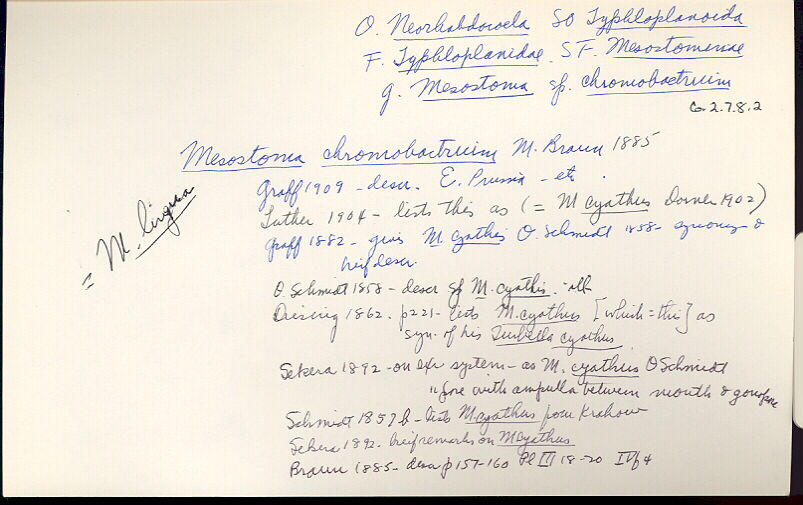 O. Neorhabdocoela SO Typhloplanoida
F. Typhloplanidae. SF. Mesostominae
g. Mesostoma sp. chromobactrum
G.2.7.8.2
Mesostoma chromobactrum M. Braun 1885
Graff 1909 - descr. E. Prussia - etc.
Luther 1904 - lists this as (= M cyathus Dorner 1902)
Graff 1882 - gives M. cyathus O. Schmidt 1858 - synonymy &
brief descr.
= M. lingua
O. Schmidt 1858 - descr of M. cyathis.
Diesing 1862. p221 - lists M. cyathus [which = this] as
syn. of his Turbella cyathus
Sekera 1892 - on exr system - as M. cyathus O Schmidt
"pore with ampulla between mouth & gonopore
Schmidt 1857b - lists M cyathus from Krakow
Sekera 1892. brief remarks on M cyathus
Braun 1885 - descr p157-160 Pl III 18-20 IV f 4